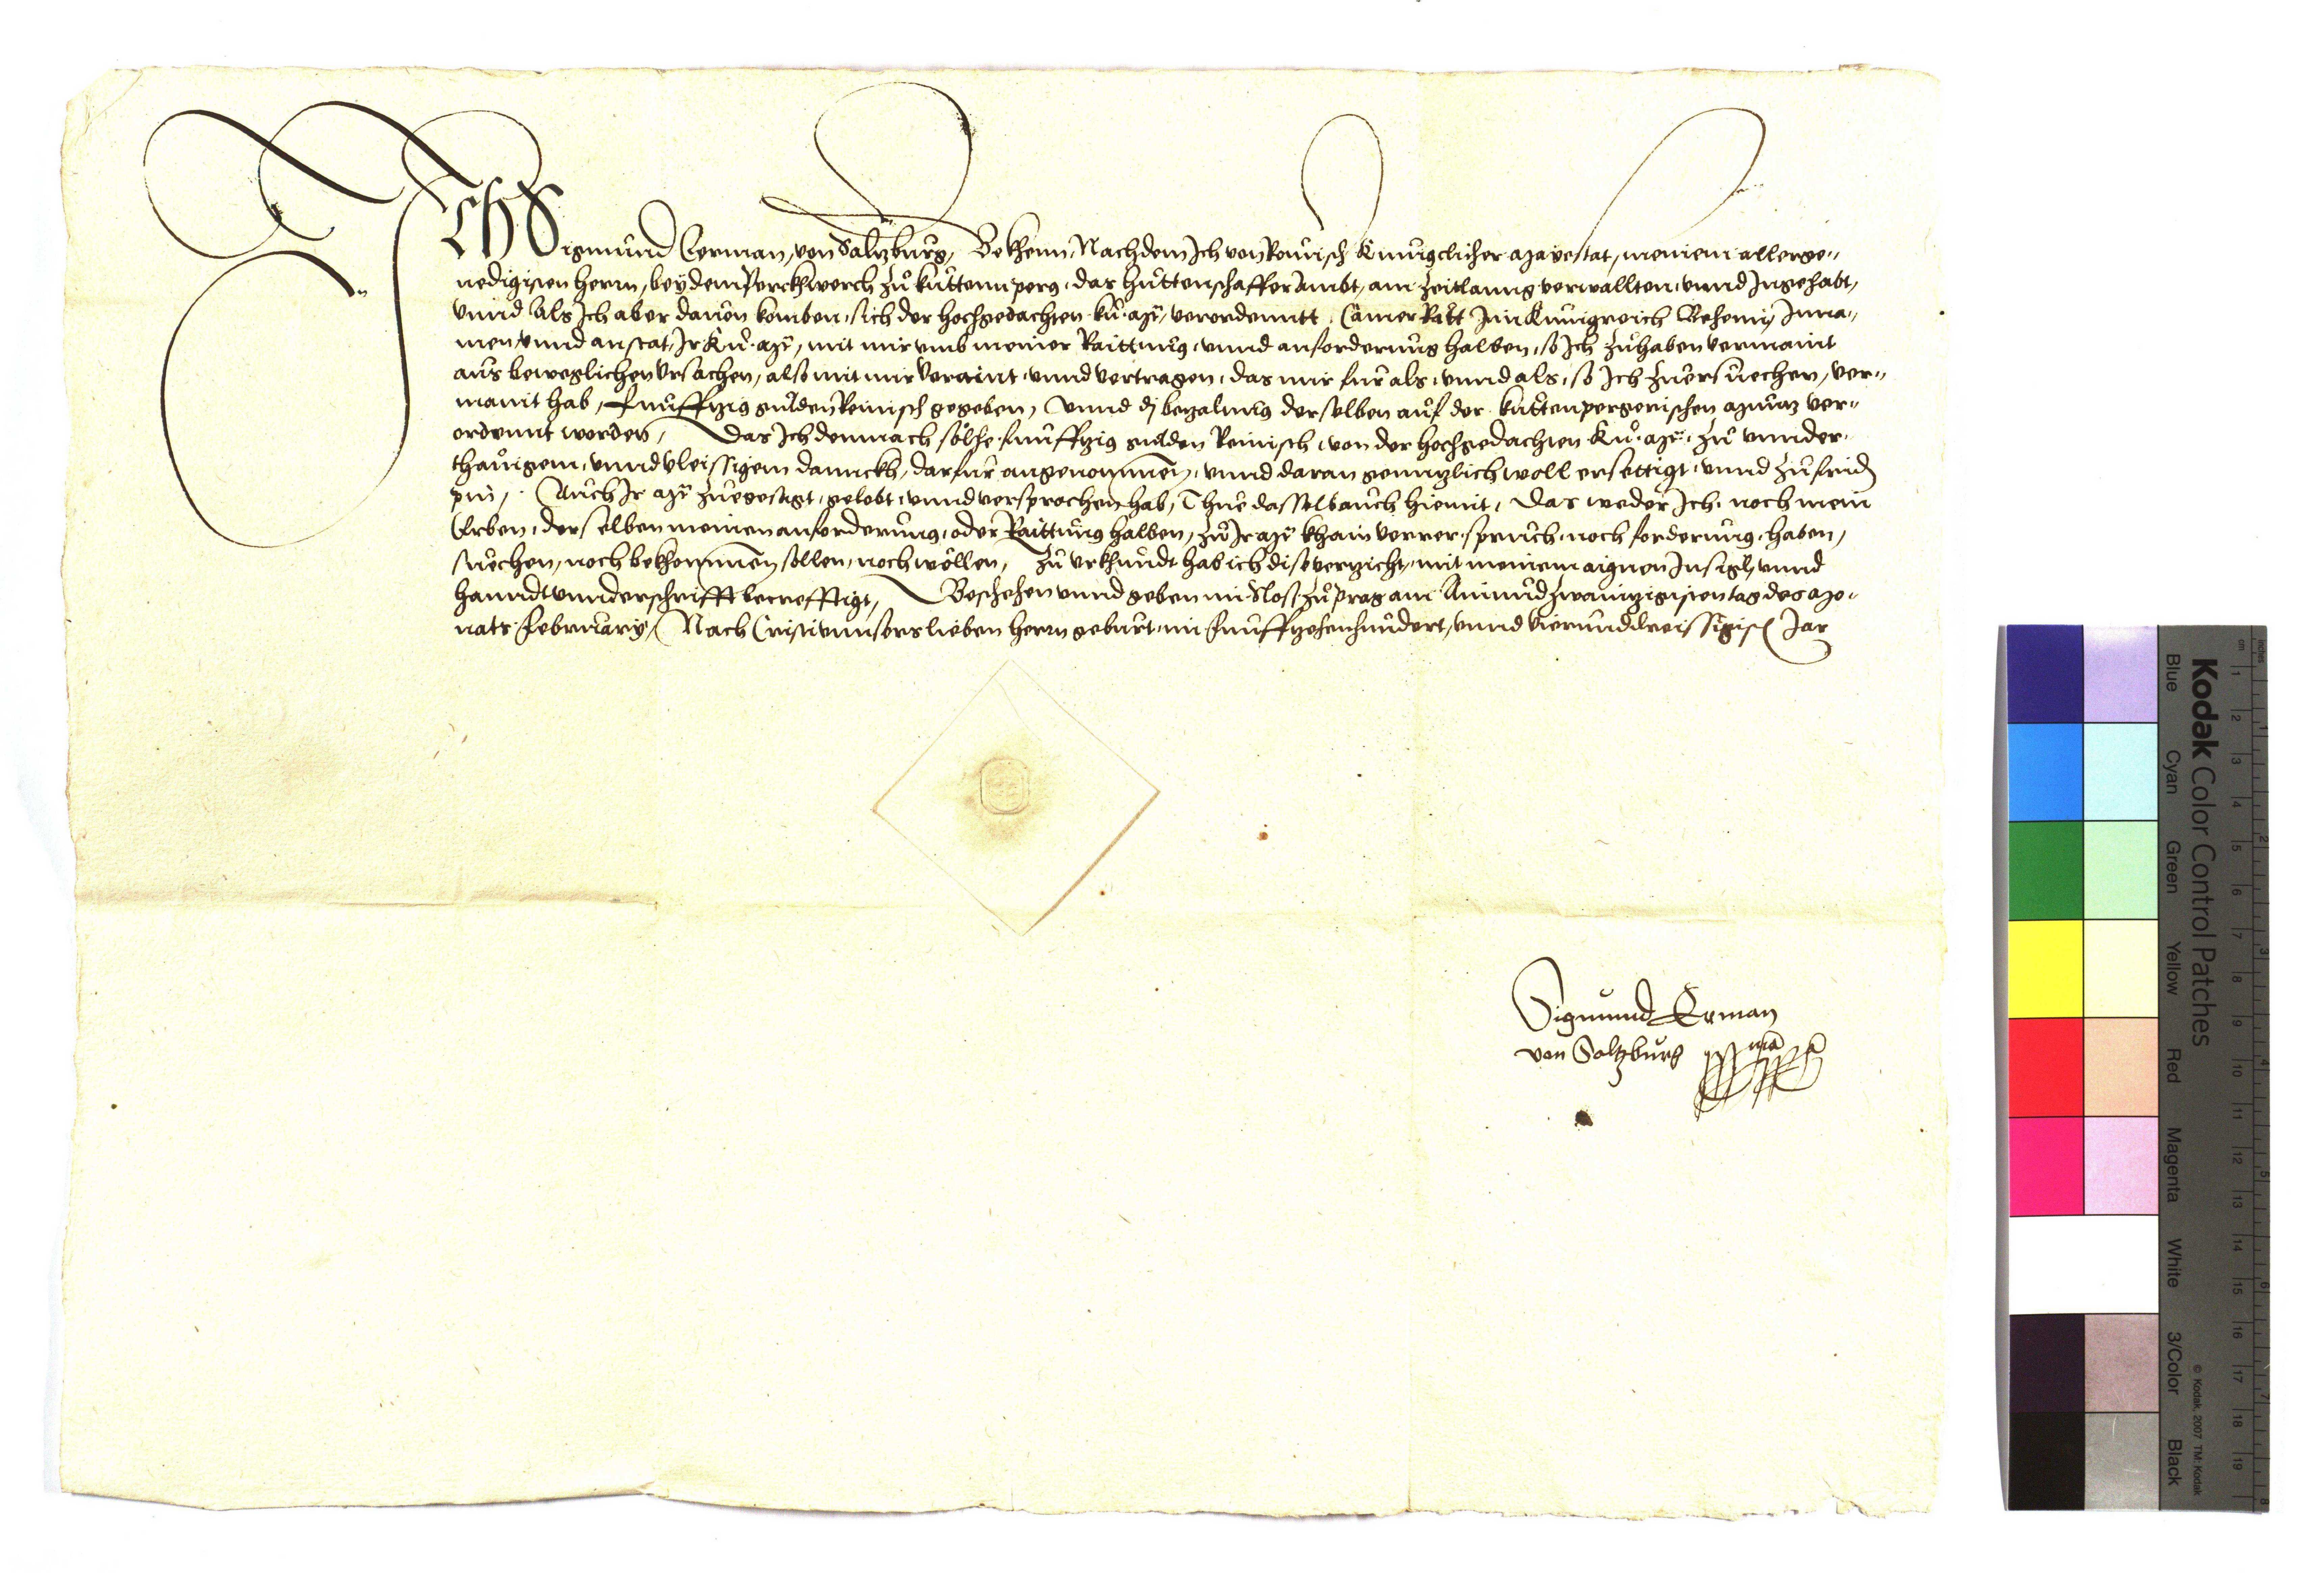 Ich Sigmund Eerman, von Saltzburg, Bekhenn, Nachdem Ich von Romisch Kunigclicher Mayestat, meinem allerge-
nedigisten herrn, bey dem Perckhwerch zu kuttenperg, das huttenschaffer Ambt, ain Zeitlanng verwallten, vnnd Ingehabt,
Vnnd Als Ich aber dauon komben, sich der hochgedachten ku. Mt. verordenntt Camer Rätt Im Kunigreich Behemb, In na-
men, vnnd anstat, Ir Ku. Mt. mit mir vmb meiner Raittung, vnnd anforderung halben, so Ich zu haben vermaint
aus beweglichen Vrsachen, also mit mir veraint, vnnd vertragen, das mir fur als, vnnd als, so Ich zu ersuechen, ver-
maint hab, Funffzig gulden Reinisch gegeben, Vnnd dj bezalung derselben auf der kuttenpergerischen Muntz ver-
ordennt worden, Das Ich demnach solhe funffzig gulden Reinisch, von der hochgedachten Ku. Mt. zu vnnder-
thanigem, vnnd vleissigem dannckh, darfur angenommen, vnnd daran genntzlich woll ersettigt, vnnd zufriden
pin, Auch Ir Mt zuegesagt, gelobt, vnnd versprochen hab, Thue dasselb auch hiemit, Das weder Ich, noch mein
Erben, derselben meinen anforderung, oder Raittung halben, zu Ir Mt khain verrer, spruch, noch forderung, haben,
suechen, noch bekhommen sollen, noch wöllen, Zu vrkhundt hab ich dise verzicht, mit meinem aignen Insigl, vnnd
hanndtvnnderschrifft becrefftigt, Beschehen vnnd geben im Slosz zu Prag am Ainundzwaintzigisten tag des Mo-
nats February, Nach Cristi vnnsers lieben herrn geburt, im funffzehenhundert, vnnd Vierunddreissigisten Jar
Sigmund Erman
von Saltzburg